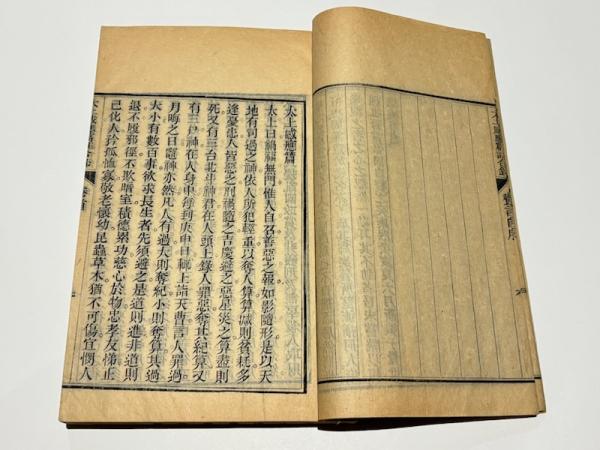 太上感應篇
太上曰禍福無門惟人自召善惡之報如影隨形是以天
地有司過之神依人所犯輕重以奪人算算減則貧耗多
逢憂患人皆惡之刑禍隨之吉慶避之惡星災之算盡則
死又有三台北斗神君在人頭上錄人罪惡奪其紀算又
有三尸神在人身中每到庚申日輒上詣天曹言人罪過
月晦之日竈神亦然凡人有過大則奪紀小則奪算其過
大小有數百事欲求長生者先須避之是道則進非道則
退不履邪徑不欺暗室積德累功慈心於物忠孝友悌正
己化人矜孤恤寡敬老懷幼昆蟲草木猶不可傷宜憫人
卷首